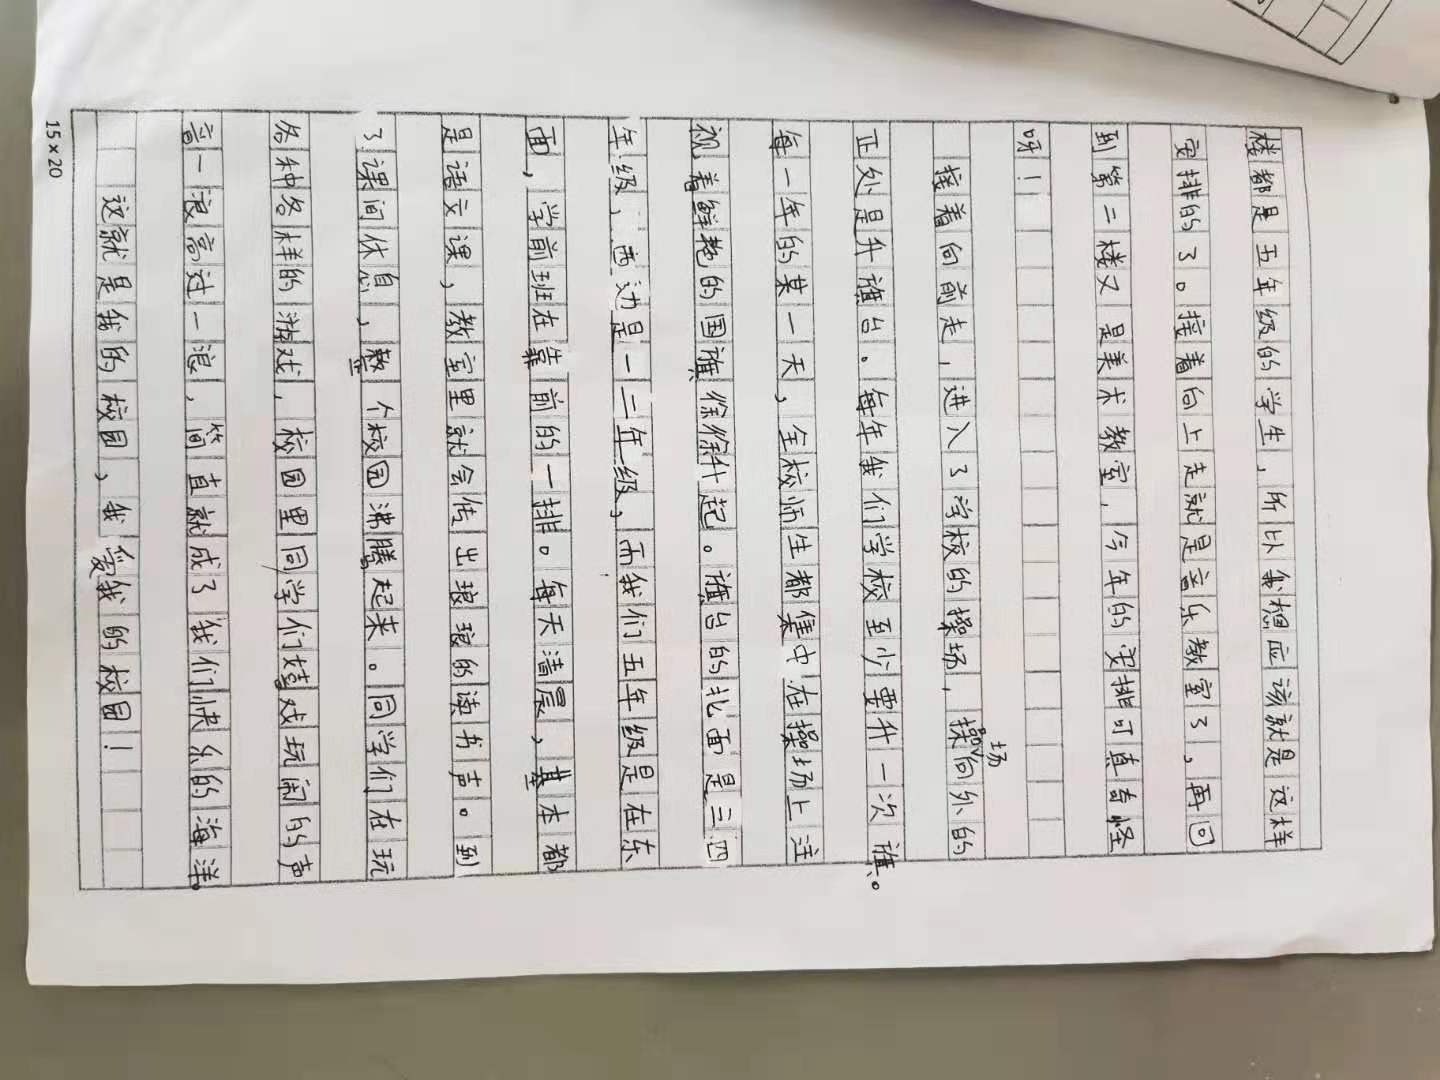 楼都是五年级的学生，所以我想应该就是这样
安排的了。接着向上走就是音乐教室了，再回
到第二楼又是美术教室，今年的安排可真奇怪
呀！
接着向前走，进入了学校的操场，操场向外的
正处是升旗台。每年我们学校至少要升一次旗。
每一年的某一天，全校师生都集中在操场上注
视着鲜艳的国旗徐徐升起。旗台的北面是三四
年级，西边是一二年级，而我们五年级是在东
面，学前班在靠前的一排。每天清晨，基本都
是语文课，教室里就会传出琅琅的读书声。到
了课间休息，整个校园沸腾起来。同学们在玩
各种各样的游戏，校园里同学们嬉戏玩闹的声
音一浪高过一浪，简直就成了我们快乐的海洋。
这就是我的校园，我爱我的校园！
15×20